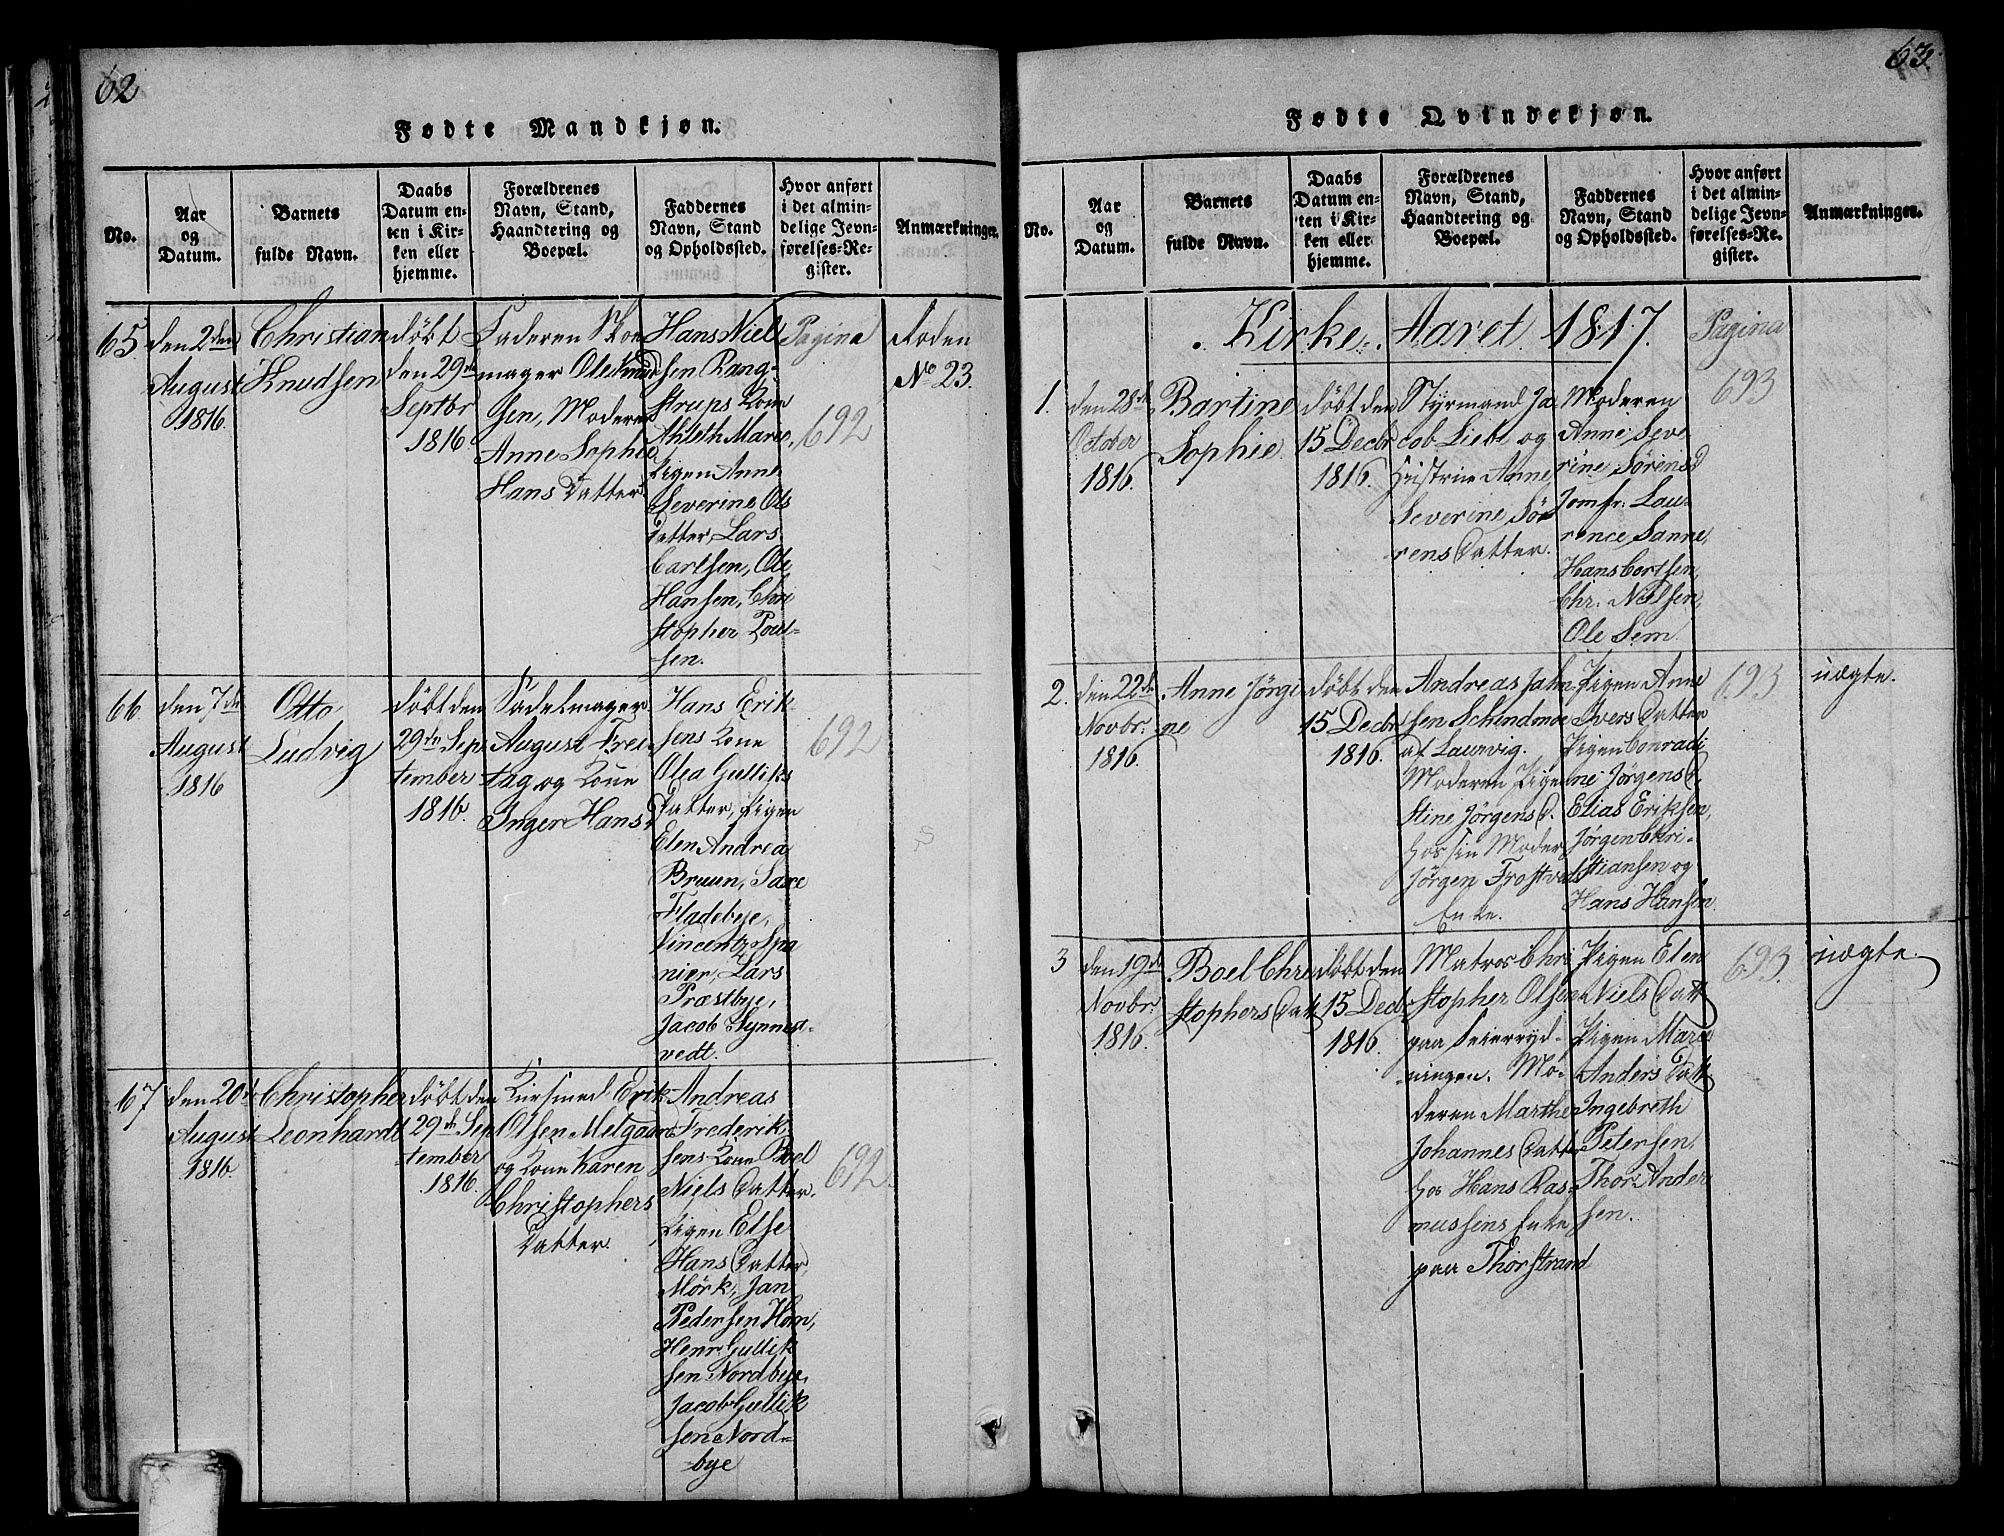 62
Fødte Mandkjøn.
No.
Aar
og
Datum.
Barnets
fulde Navn.
Daabs
Datum en-
ten i Kir-
ken eller
hjemme.
Forældrenes
Navn, Stand,
Haandtering og
Boepæl.
Faddernes
Navn, Stand
og Opholdssted.
Hvor anført
i det almin-
delige Jevn-
førelses-Re-
gister.
Anmærkninger.
65
den 2den
August
1816.
Christian
Knudsen
døbt
den 29de
Septbr
1816.
Faderen Skoe
mager Ole Knud
sen, Moderen
Anne Sophie
Hans Datter
Hans Niel
sen Rang-
strups Kone
Ahleth Marie,
Pigen Anne
Severine Ols
datter, Lars
Carlsen, Ole
Hansen, Chri
stopher Poul-
sen.
Pagina
692
Roden
No 23.
66
den 7de
August
1816
Otto
Ludvig
døbt den
29de Sep
tember
1816.
Sadelmager
August Frei-
tag og Kone
Inger Hans D
Hans Erik
sens Kone
Olea Gulliks
Datter, Pigen
Elen Andrea
Bruun, Saxe
Fladebye,
Vincentz Spa
nier, Lars
Præstbye,
Jacob Synnest-
vedt.
692
67
den 20de
August
1816.
Christopher
Leonhardt
døbt den
29de Sep
tember
1816.
Kursmed Erik
Olsen Melgaard
og Kone Karen
Christophers
Datter.
Andreas
Frederik
sens Kone Boel
Niels Datter.
Pigen Else
Hans Datter
Mørk, Jan
Pedersen Horn,
Henr Gullik
sen Nordbye,
Jacob Gullik
sen Nord-
bye
692.
63.
Fødte Qvindekjøn.
No.
Aar
og
Datum.
Barnets
fulde Navn.
Daabs
Datum en-
ten i Kir-
ken eller
hjemme.
Forældrenes
Navn, Stand,
Haandtering og
Boepæl.
Faddernes
Navn, Stand
og Opholdssted.
Hvor anført
i det almin-
delige Jevn-
førelses-Re-
gister.
Anmærkninger.
Kirke Aaret 1817.
Pagina
1.
den 28de
October
1816.
Bartine
Sophie
døbt den
15 Decbr
1816.
Styrmand Ja
cob Liebe og
Hustrue Anne
Severine Sø
rens Datter.
Moderen
Anne Seve
rine Sørens D
Jomfr. Lau-
rence Sanne,
Hans Cortsen,
Chr. Nilsen,
Ole Sem
693
2.
den 22de
Novbr.
1816.
Anne Jørgi
ne
døbt den
15 Decbr
1816.
Andreas Jahn
sen Schindmoe
af Laurvig.
Moderen Pigen
Stine Jørgens D.
hos sin Moder
Jørgen Frostvets
Enke.
Pigen Anne
Ivers Datter
Pigen Conradi
ne Jørgens D.
Elias Eriksen,
Jørgen Chri-
stiansen og
Hans Hansen
693
uægte.
3
den 19de
Novbr.
1816.
Boel Chri
stophers Datt
døbt den
15 Decbr
1816.
Matros Chri
stopher Olsen
paa Seierryd-
ningen. Mo-
deren Marthe
Johannes Datter
hos Hans Ras-
mussens Enke
paa Thorstrand
Pigen Elen
Niels Datt
Pigen Marie
Anders Datt
Ingebreth
Petersen,
Thor Ander
sen.
693
uægte.